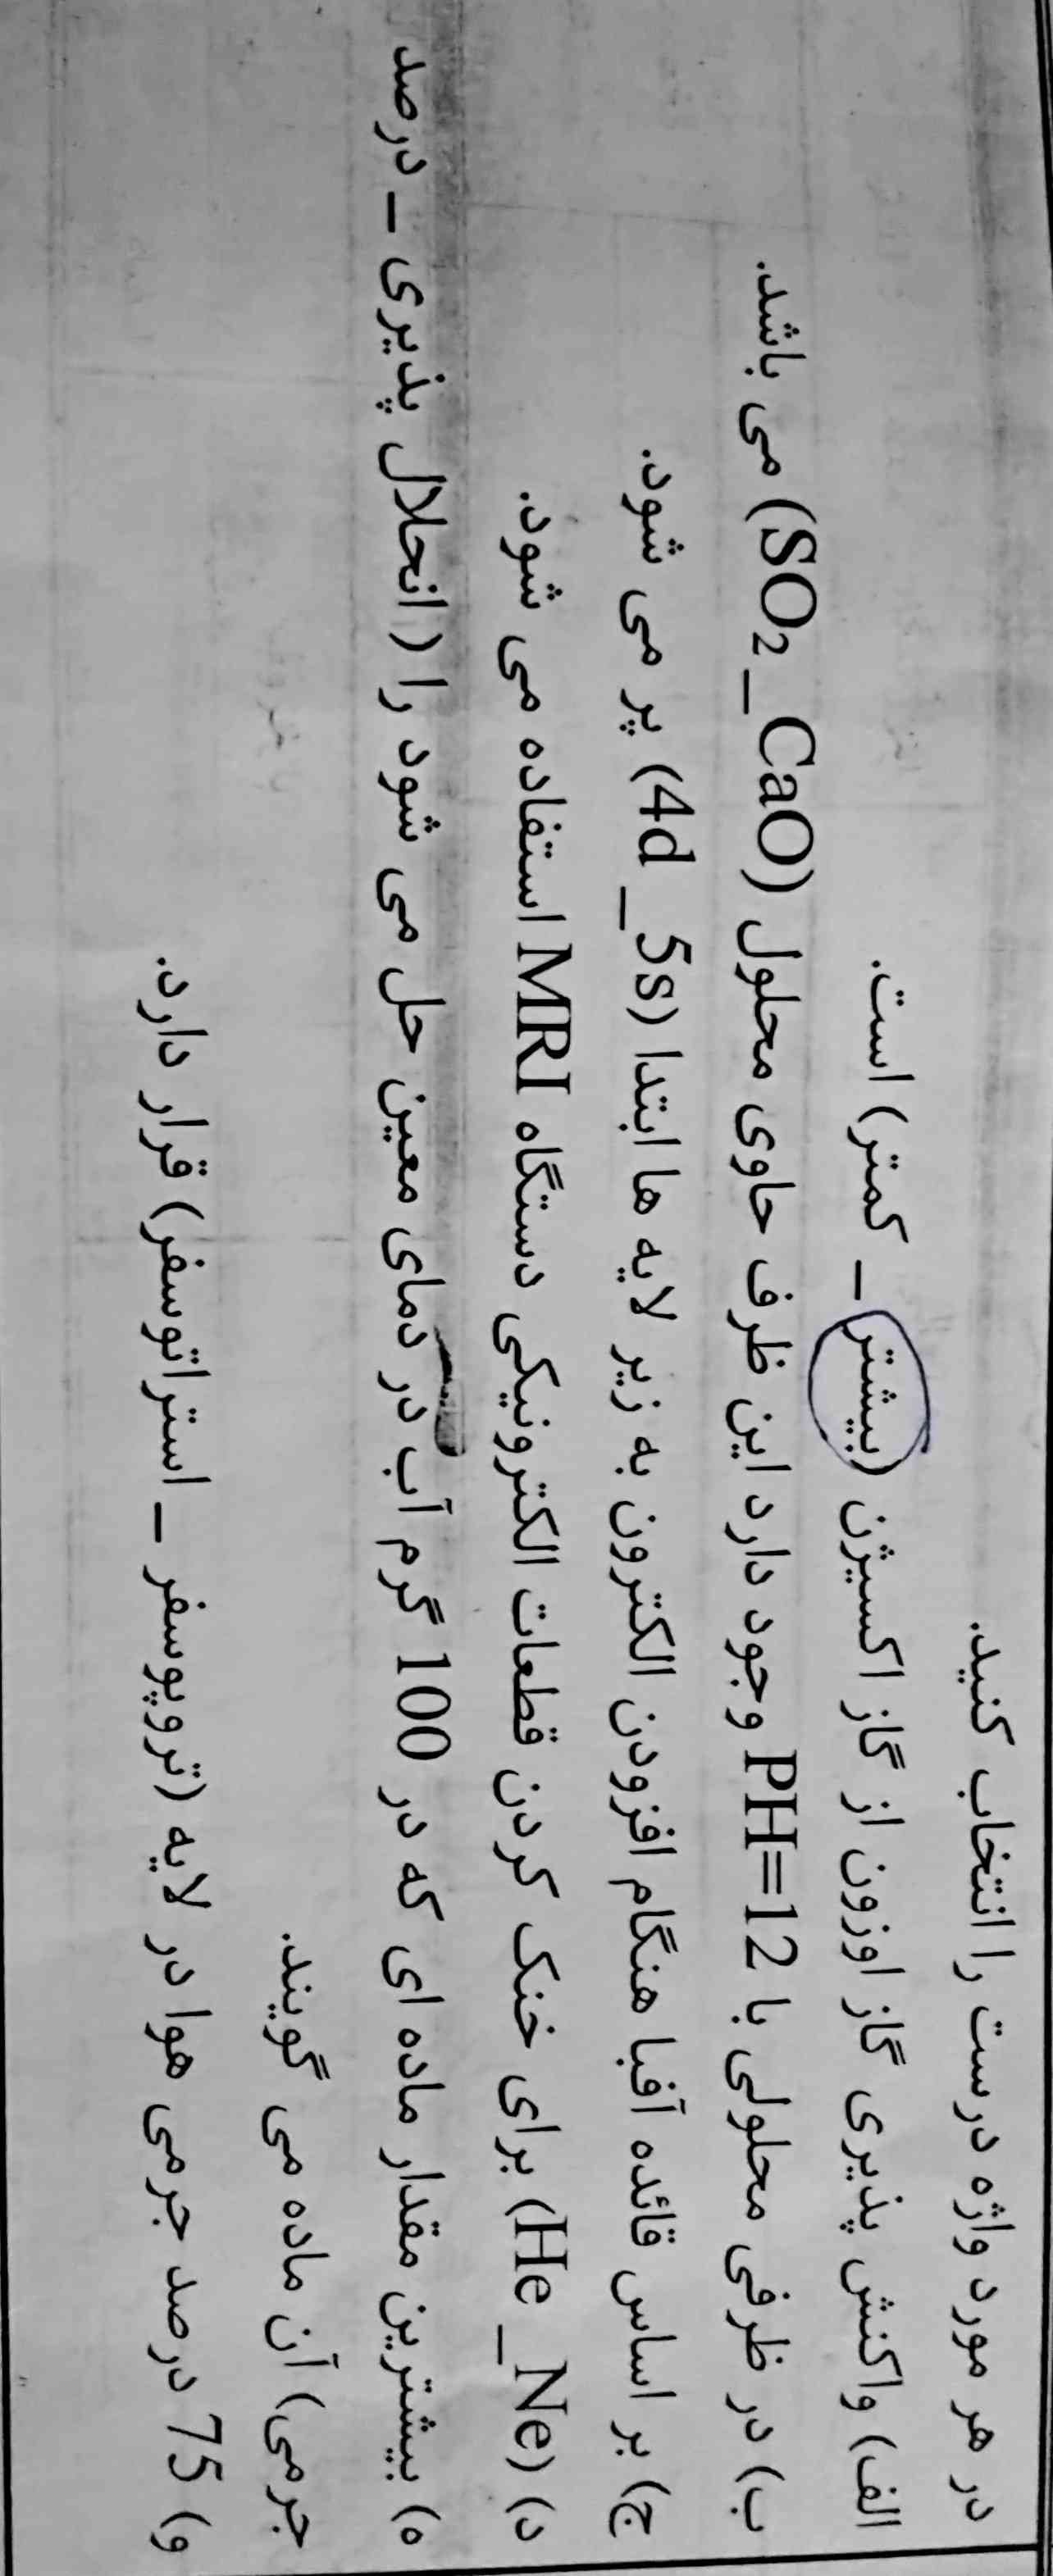 در هر مورد واژه درست را انتخاب کنید.
الف) واکنش پذیری گاز اوزون از گاز اکسیژن (بیشتر _ کمتر) است.
ب) در ظرفی محلولی با PH=12 وجود دارد این ظرف حاوی محلول (SO₂_CaO) می باشد.
ج) بر اساس قائده آفبا هنگام افزودن الکترون به زیر لایه ها ابتدا (4d_5s) پر می شود.
د) (He_Ne) برای خنک کردن قطعات الکترونیکی دستگاه MRI استفاده می شود.
ه) بیشترین مقدار ماده ای که در 100 گرم آب در دمای معین حل می شود را (انحلال پذیری _ درصد
جرمی) آن ماده می گویند.
و) 75 درصد جرمی هوا در لایه (تروپوسفر _ استراتوسفر) قرار دارد.